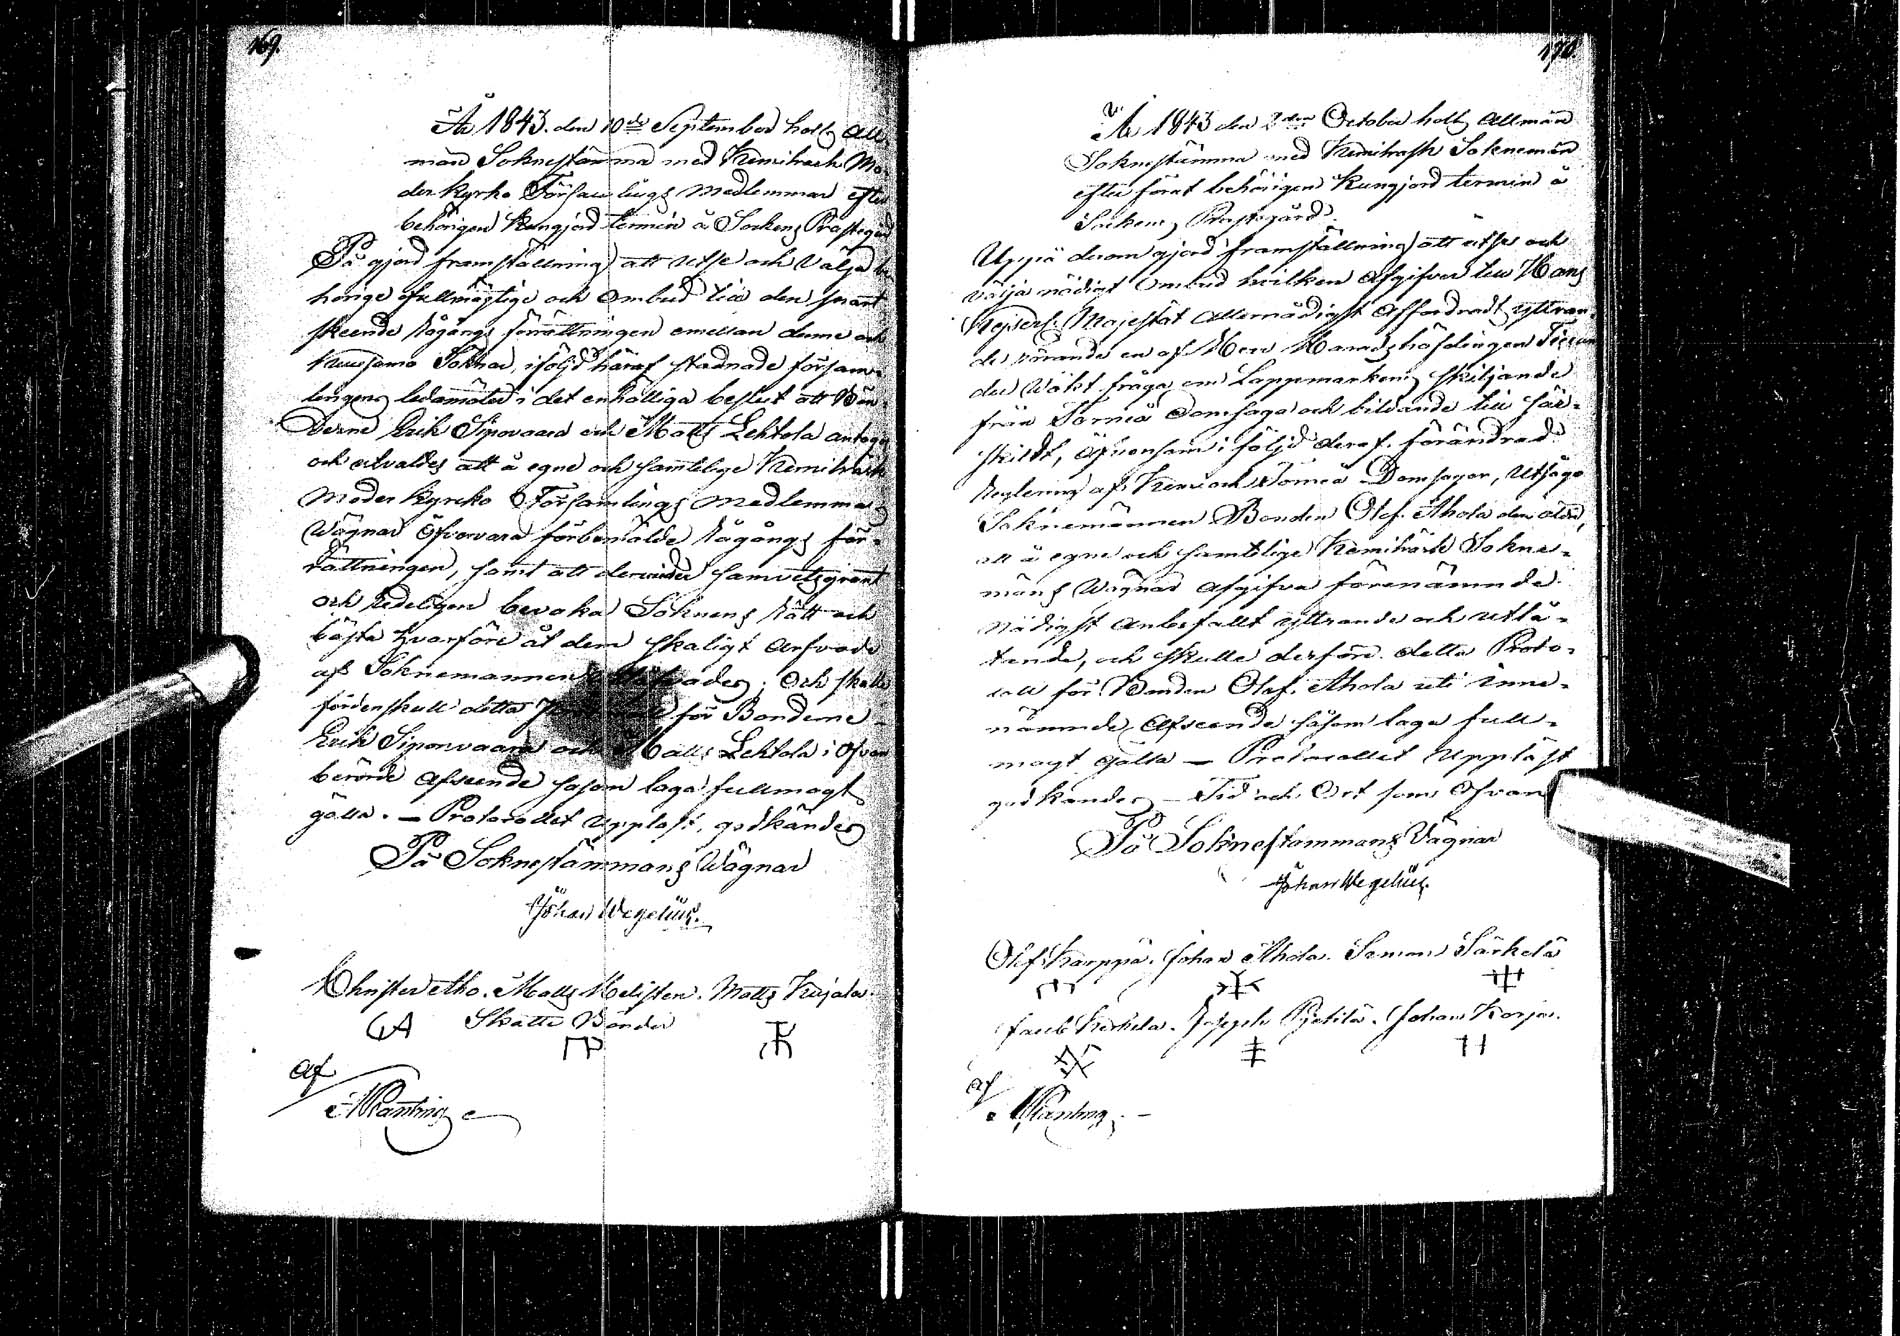 169.
År 1843. den 10de September holtz All-
män Soknestämma med Kemiträsk Mo-
der kyrko Församlings medlemmar efter
behörigen kungjord termin å Sockens Prästegård
På gjord framställning att utse och välja be-
hörige fullmägtige och Ombud till den snart
skeende Rågångs förrättningen emellan denne och
Kuusamo Soknar, i följd häraf stadnade försam-
lingens ledamöter i det enhälliga beslut att Bön-
derne Erik Siponvaara och Matts Lehtola antogos
och utvaldes att å egne och samtelige Kemiträsk
Moder Kyrcko Församlings Medlemmars
Wägnar öfvervara förbemälde Rågångs för-
rättningen, samt att derunder samvetsgrant
och Redeligen bevaka Soknens Rätt och
bästa hvarföre åt dem skäligt Arfvode
af Soknemannen ; Och skulle
fördenskull detta för Bönderne
Erik Siponvaara och Matts Lehtola i Ofvan
berörde Afseende såsom laga fullmagt
gälla. — Protocollet Uppläst, godkändes
På Soknestämmans Wägnar
Johan Wegelius.
Christer Aho. Matts Kelisten. Matts Kujala.
Skatte Bönder
af
Planting
170.
År 1843 den 2den October holtz Allmän
Soknestämma med Kemiträsk Soknemän
efter förut behörigen Kungjord termin å
Sockens Prästegård.
Uppå derom gjord framställning att utse och
välja nödigt Ombud hvilken Afgifver till Hans
Kejserl. Majestät Allernådigst Affordradt yttran-
de rörande en af Herr Häradshöfdingen
der Wäkt fråga om Lappmarkens skiljande
från Torneå Domsaga och bildande till sär-
skildt, äfvensom i följd deraf förändrad
Reglering af Kemi och Torneå Domsagor, Utsågo
Soknemännen Bonden Olof Ahola den äldre,
att å egne och samtelige Kemiträsk Sokne-
mäns Wägnar afgifva förenämnde
Nådigst anbefallt yttrande och utlå-
tande, och skulle derföre detta Proto-
coll för Bonden Olof Ahola uti inne-
nämnde Afseende såsom laga full-
magt gälla — Protocollet Uppläst
godkändes — Tid och Ort som Ofvan
På Soknestämmans Vägnar
Johan Wegelius.
Olof Karppa. Johan Ahola. Samon Särkelä
Jacob Kerkela. Joseph Pyetilä. Johan Korja.
af
Planting.